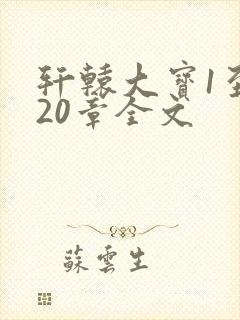 轩辕大宝1至
20章全文
蘇雲生